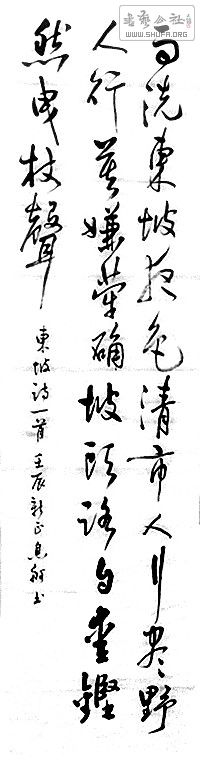 書法公社
WWW.SHUFA.ORG
雨洗東坡夜色清市人行盡野
人行莫嫌犖確坡頭路自愛鏗
然曳杖聲
東坡詩一首 壬辰新正